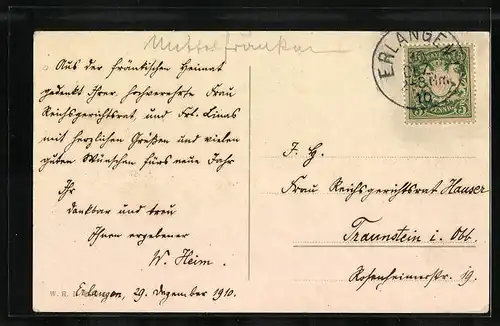 Mittelfranken
Aus der fränkischen Heimat
gedenkt Ihrer hochverehrte Frau
Reichsgerichtsrat, und Frl. Linas
mit herzlichen Grüßen und vielen
guten Wünschen fürs neue Jahr
Ihr
dankbar und treu
Ihnen ergebener
W. Heim.
Erlangen, 29. Dezember 1910.
W. R.
ERLANGEN
10
5 5
F. H.
Frau Reichsgerichtsrat Hauser
Traunstein i. Obb.
Rosenheimerstr. 19.